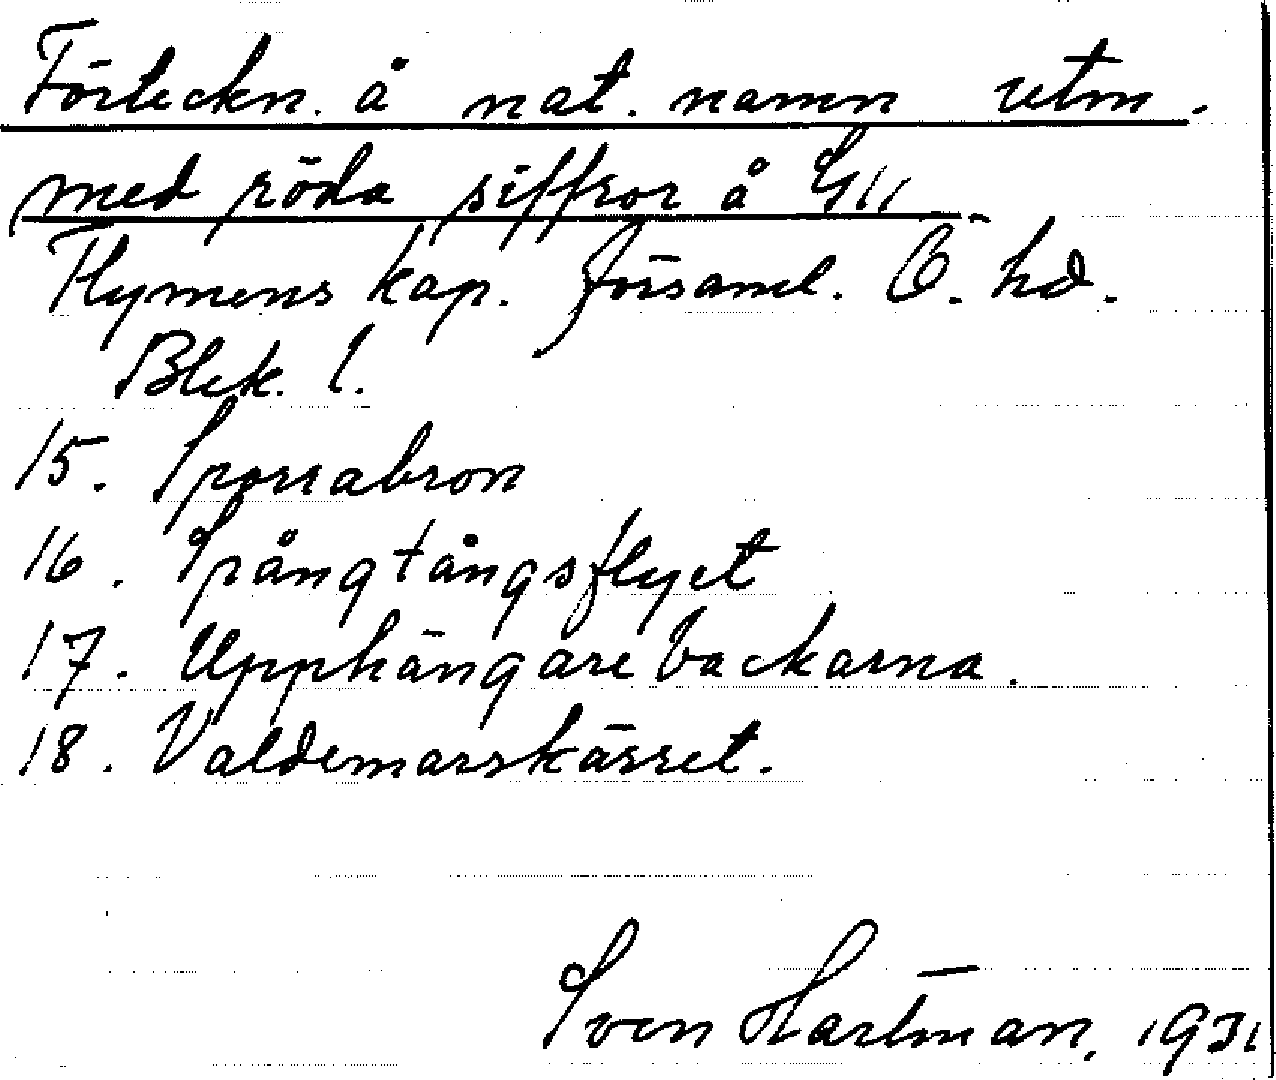 Förteckn. å nat. namn utm.
med röda siffror å G11
Flymens kap. församl. Ö. hd.
Blek. l.
15. Sporrabron
16. Spångtångsflyet
17. Upphängarebackarna.
18. Valdemarskärret.
Sven Hartman, 1931